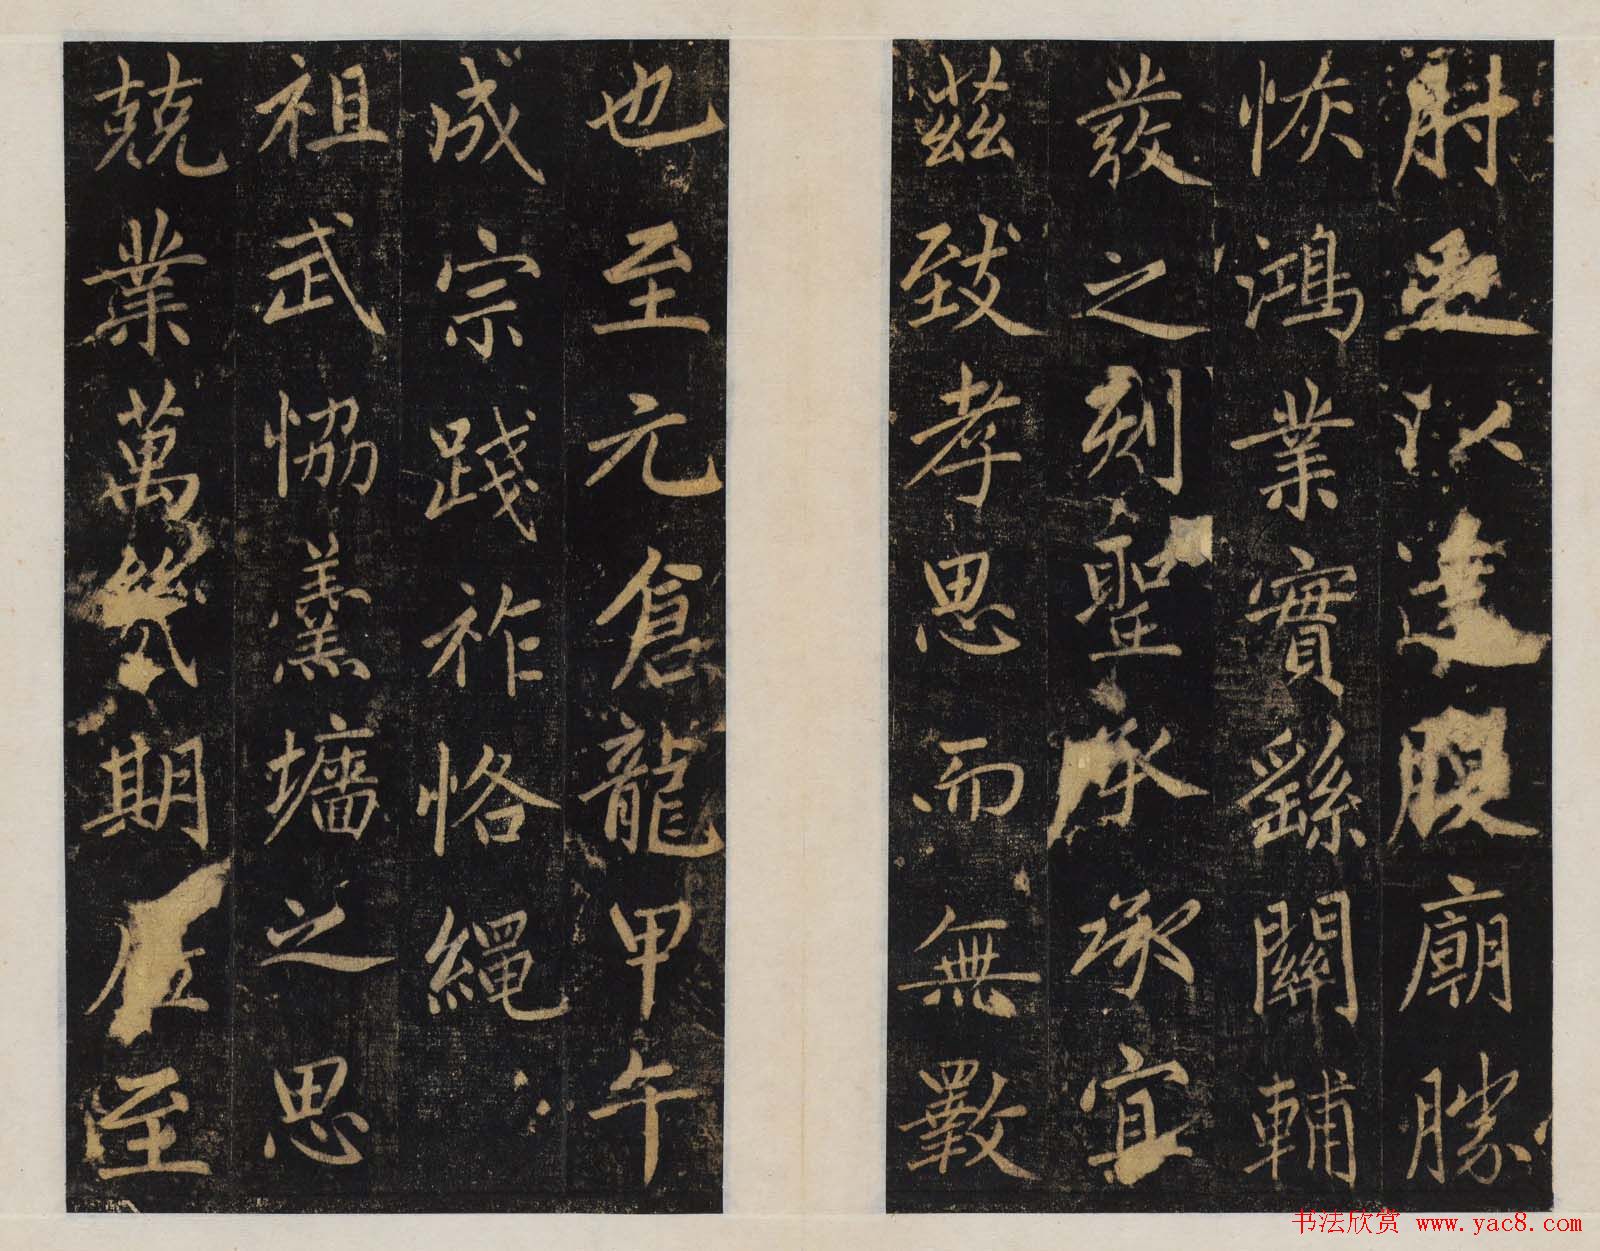 肘以達腹廟勝
恢鴻業實繇關輔
發之刻聖承承宜
茲致孝思而無斁
也至元倉龍甲午
成宗踐祚恪繩
祖武恊羹墻之思
兢業萬幾期底至
书法欣赏 www.yac8.com